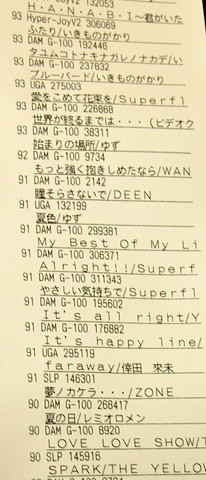 HyperJoyV2 132053
HANABI～君がいた
93 Hyper-JoyV2 306069
ふたり/いきものがかり
93 DAM G-100 192446
タユムコトナキナガレノナカデ/い
93 DAM G-100 237832
ブルーバード/いきものがかり
93 UGA 275003
愛をこめて花束を/Superfl
93 DAM G-100 226868
世界が終るまでは・・・(ビデオク
93 DAM G-100 38311
始まりの場所/ゆず
92 DAM G-100 9734
もっと強く抱きしめたなら/WAN
91 DAM G-100 2142
瞳そらさないで/DEEN
91 UGA 132199
夏色/ゆず
91 DAM G-100 299381
My Best Of My Li
91 DAM G-100 306371
Alright!!/Superf
91 DAM G-100 311343
やさしい気持ちで/Superfl
91 DAM G-100 195602
It's all right/Y
91 DAM G-100 176882
It's happy line/
91 UGA 295119
faraway/倖田 來未
91 SLP 146301
夢ノカケラ・・・/ZONE
90 DAM G-100 268417
夏の日/レミオロメン
90 DAM G-100 8920
LOVE LOVE SHOW/T
90 SLP 145916
SPARK/THE YELLOW